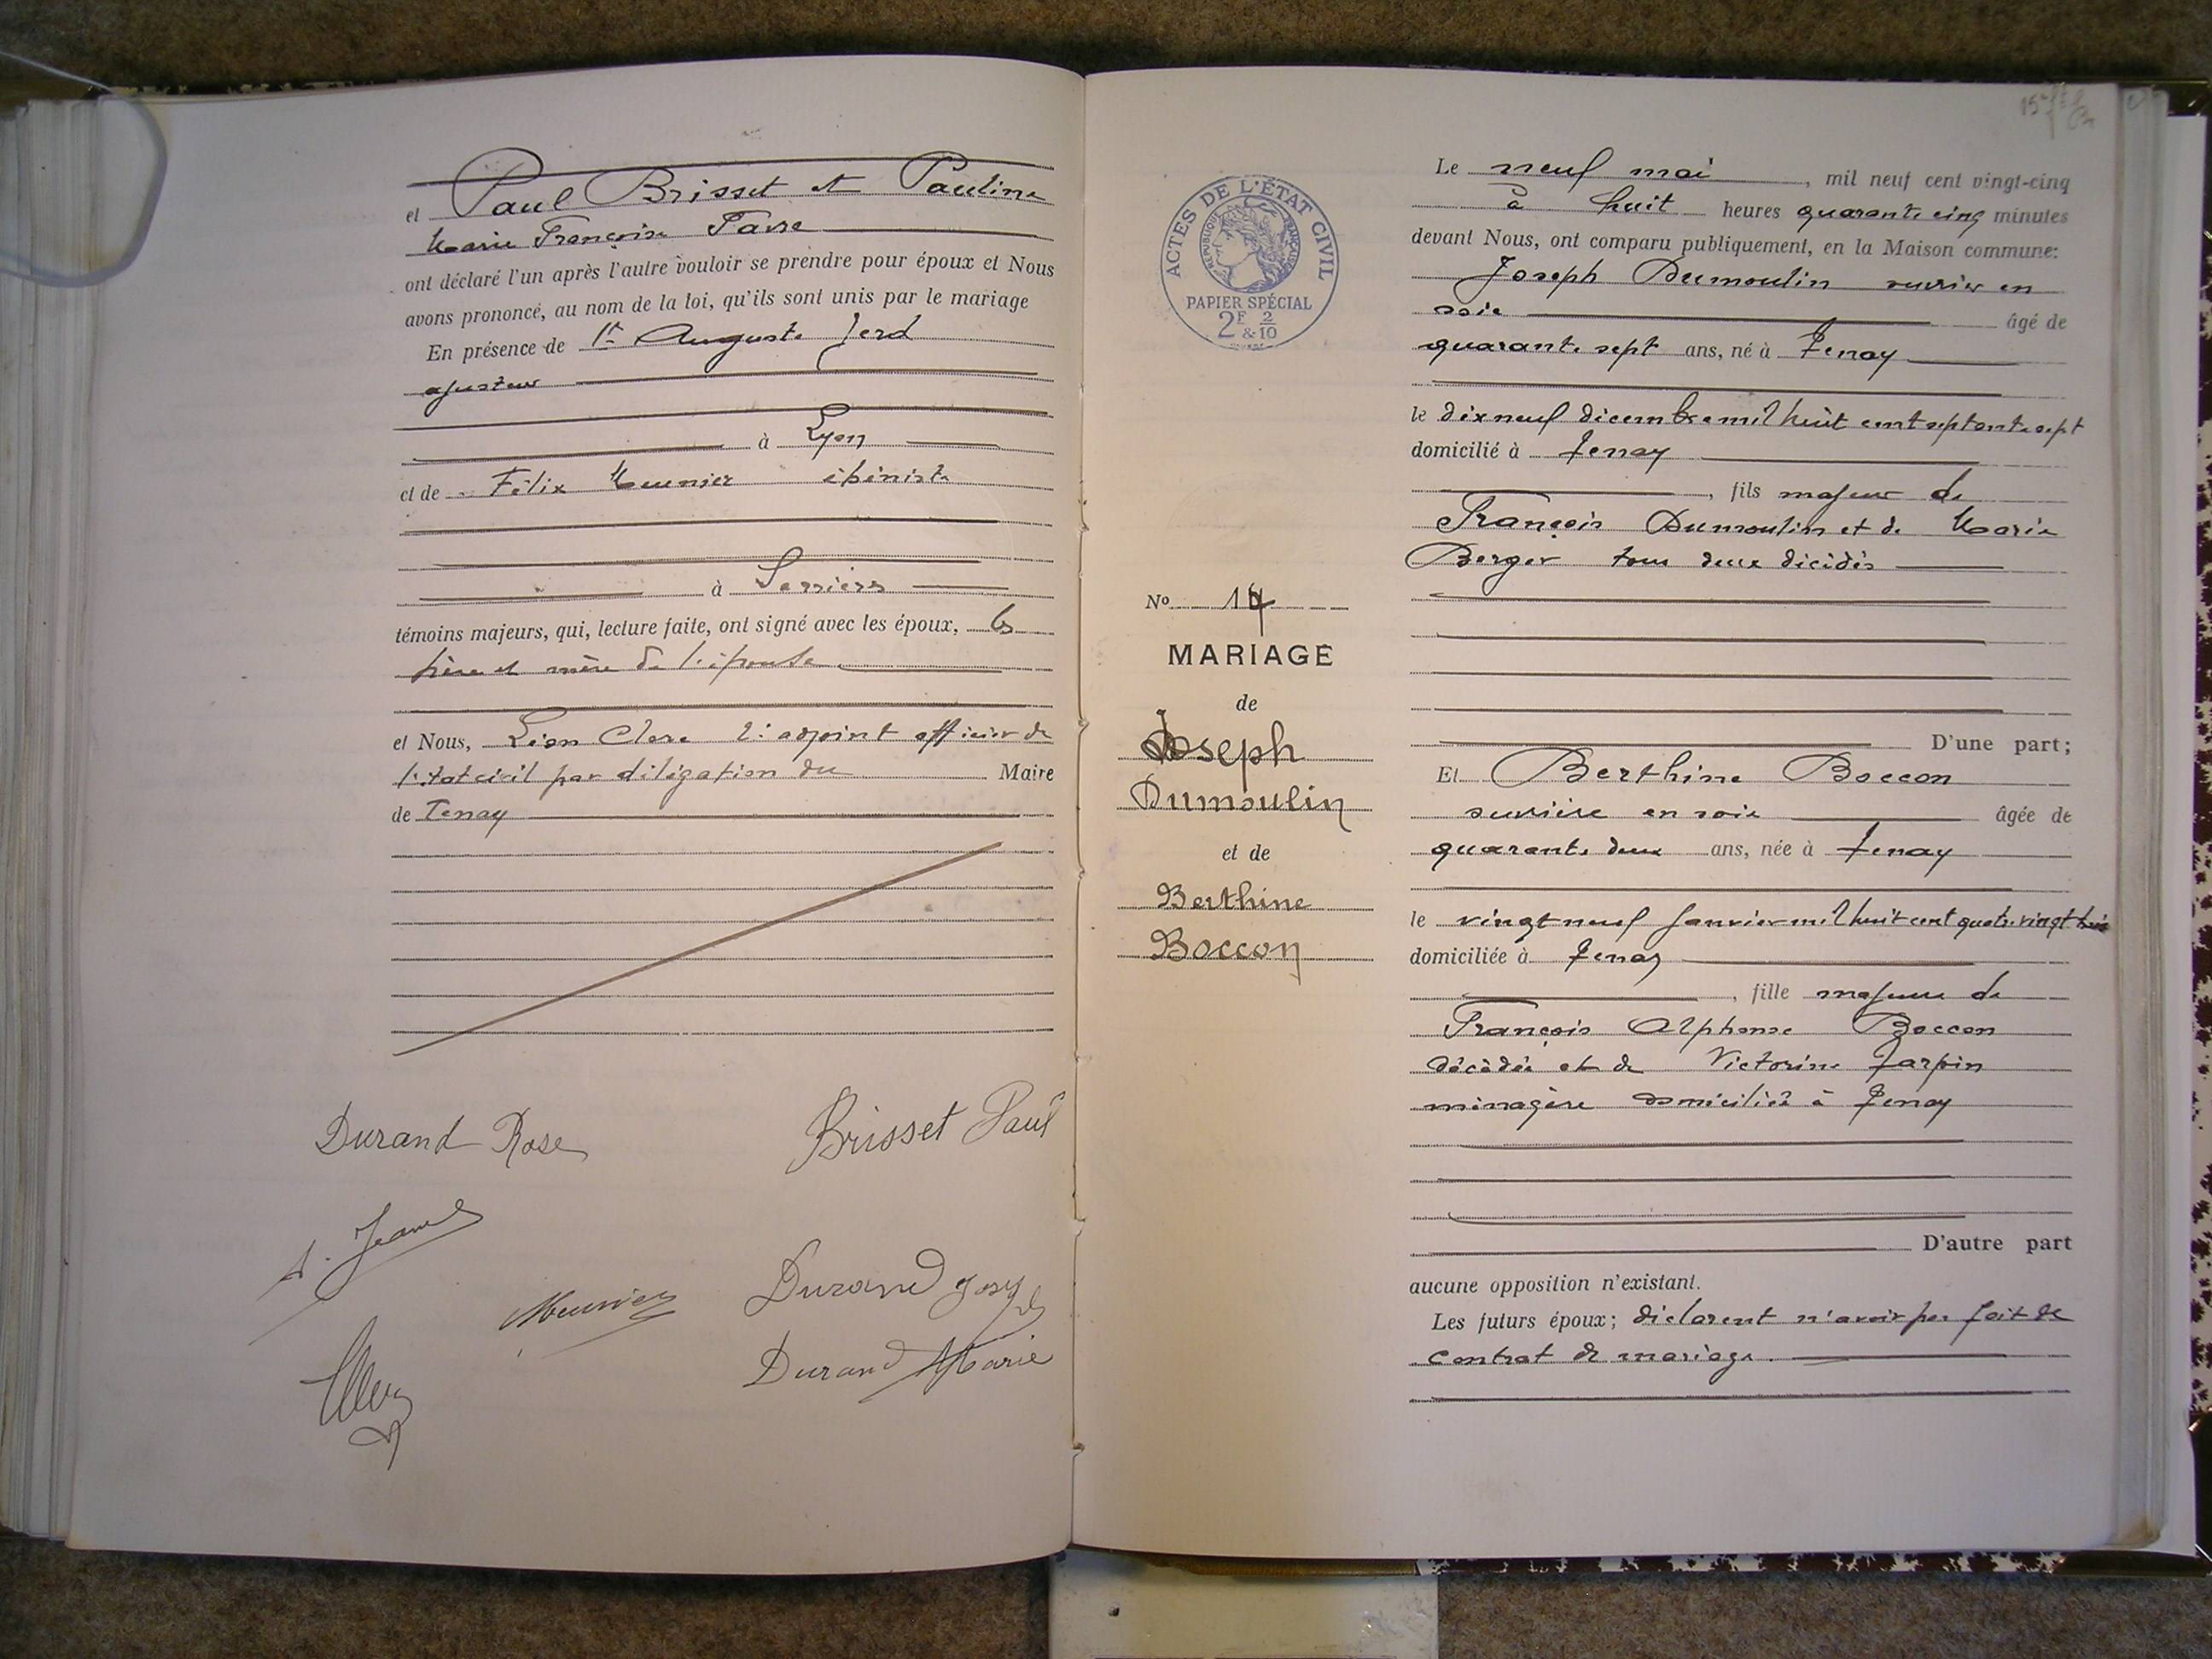 et Paul Brisset et Pauline
Marie Françoise Favre
ont déclaré l'un après l'autre vouloir se prendre pour époux et Nous
avons prononcé, au nom de la loi, qu'ils sont unis par le mariage
En présence de 1º Auguste
ajusteur
à Lyon
et de Félix Meunier ébéniste
à Serrières
témoins majeurs, qui, lecture faite, ont signé avec les époux, les
père et mère de l'épouse
et Nous, Léon Clerc 2e adjoint officier de
l'état civil par délégation du Maire
de Tenay
Durand Rose
Brisset Paul
Meunier
Durand Joseph
Durand Marie
ACTES DE L'ÉTAT CIVIL
RÉPUBLIQUE FRANÇAISE
PAPIER SPÉCIAL
2F & 2/10
No 14
MARIAGE
de
Joseph
Dumoulin
et de
Berthine
Boccon
Le neuf mai, mil neuf cent vingt-cinq
à huit heures quarante cinq minutes
devant Nous, ont comparu publiquement, en la Maison commune:
Joseph Dumoulin ouvrier en
soie âgé de
quarante sept ans, né à Tenay
le dix neuf décembre mil huit cent septante sept
domicilié à Tenay
, fils majeur de
François Dumoulin et de Marie
Berger tous deux décédés
D'une part;
Et Berthine Boccon
ouvrière en soie âgée de
quarante deux ans, née à Tenay
le vingt neuf janvier mil huit cent quatre vingt trois
domiciliée à Tenay
, fille majeure de
François Alphonse Boccon
décédé et de Victorine Jarpin
ménagère domiciliée à Tenay
D'autre part
aucune opposition n'existant.
Les futurs époux; déclarent n'avoir pas fait de
contrat de mariage.